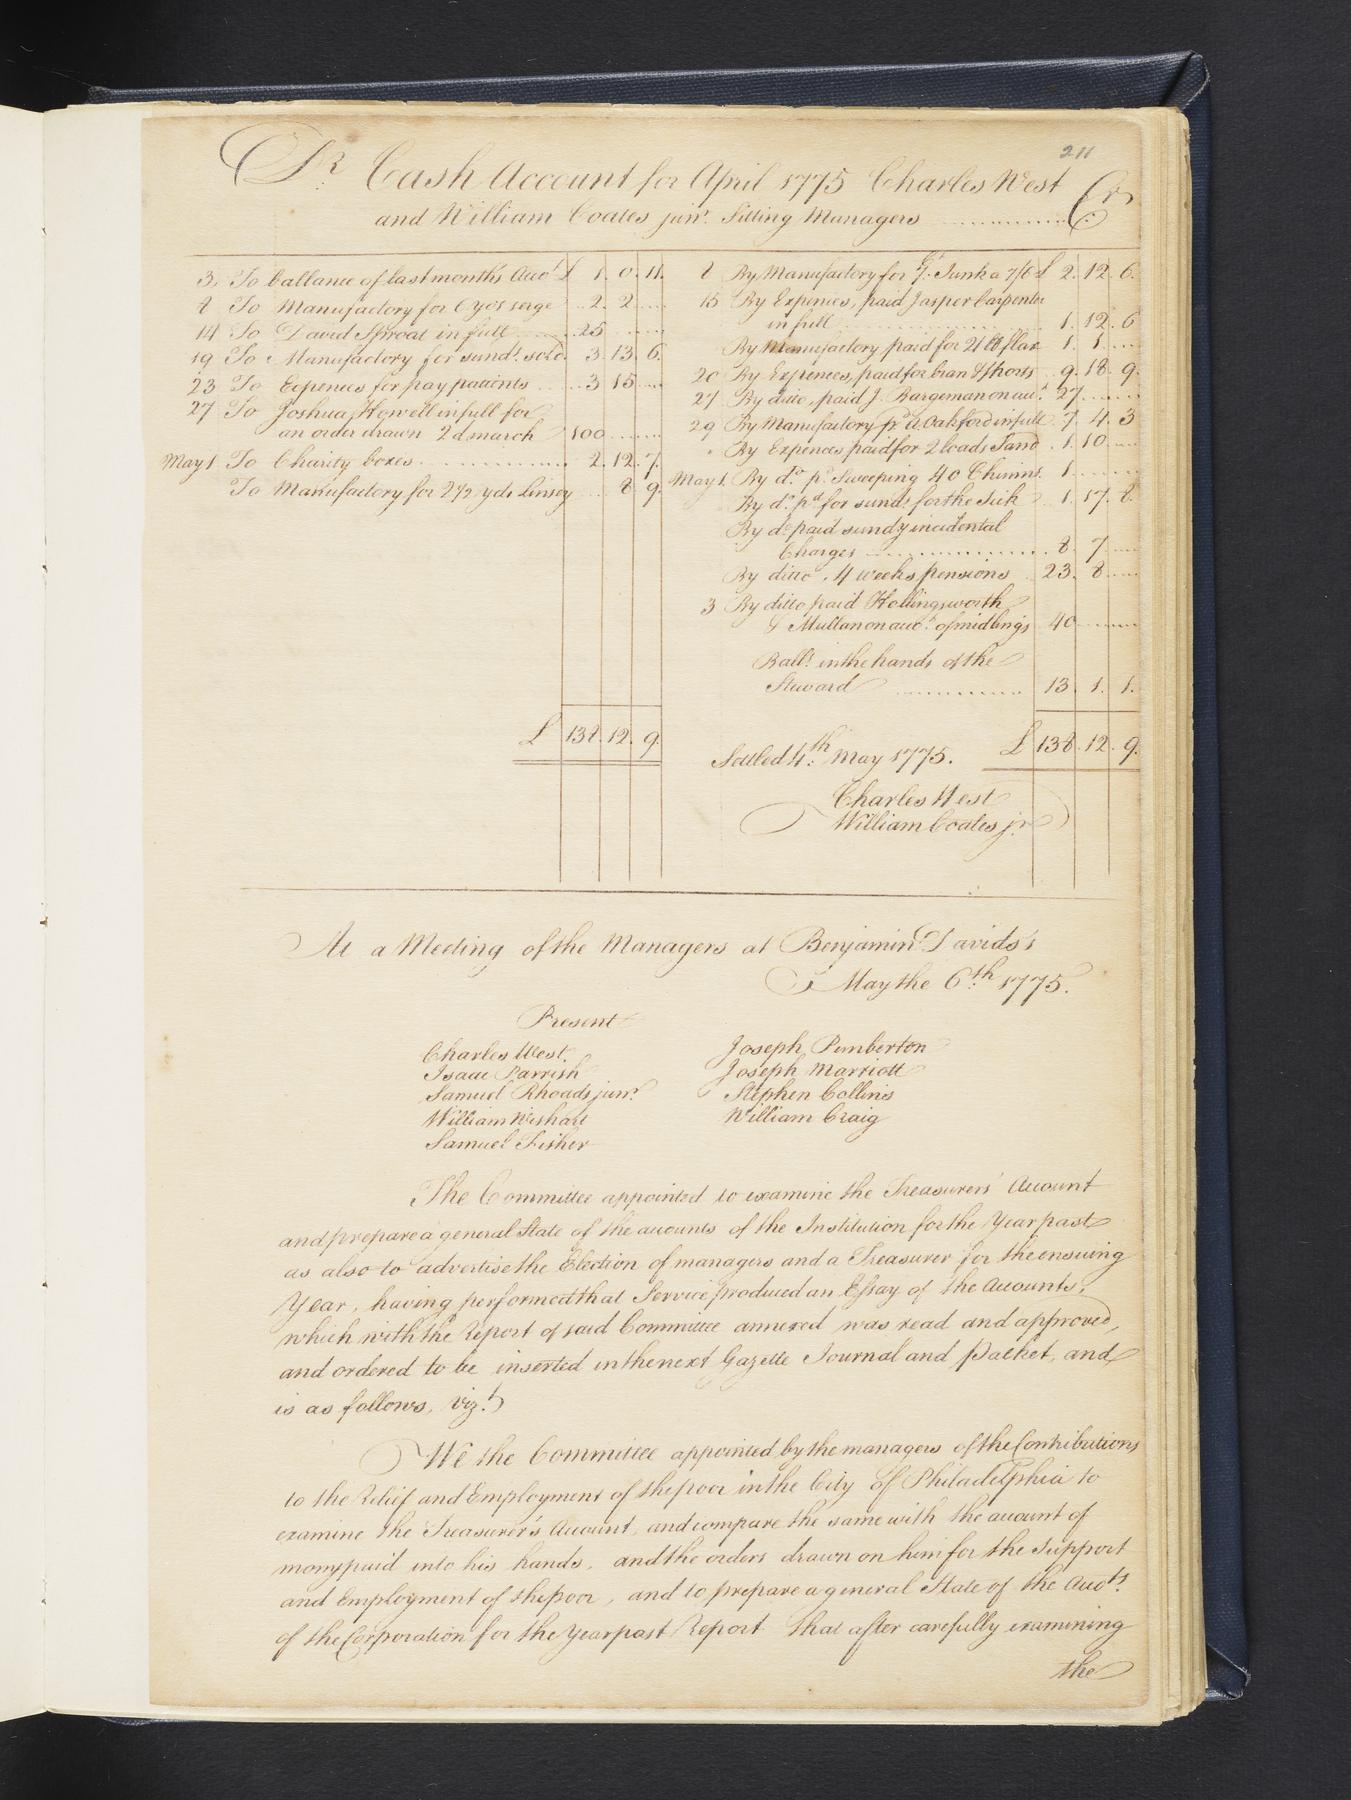 211
Dr Cash Account for April 1775 Charles West Cr
and William Coates junr. Sitting Managers
3. To ballance of last month's Accot. £ 1. 0. 11.
8 To Manufactory for 6 yds serge 2. 2
14 To David Sproat in full 25
19 To Manufactory for sunds. sold. 3. 13. 6.
23 To Expences for pay patients 3 15
27 To Joshua Howell in full for
an order drawn 2d march 100
May 1 To Charity boxes 2. 12. 7.
To Manufactory for 2 1/2 yds Linsey 8 9.
£ 138. 12. 9.
8 By Manufactory for 7. Junk a 7/6 £ 2. 12. 6.
15 By Expences, paid Jasper Carpenter
in full 1. 12. 6
By Manufactory paid for 21 lb flax 1. 1.
20 By Expences, paid for bran & Shorts 9. 18. 9.
27 By ditto, paid J. Bargeman on acct. 27
29 By Manufactory pd. A Oakford in full 7. 4. 3
" By Expences paid for 2 loads Tan 1. 10
May 1. By do. pd. Sweeping 40 Chimns. 1
By do. pd. for sunds. for the Sick 1. 17. 8.
By do paid sundy incidental
Charges 8. 7
By ditto, 4 weeks pensions 23. 8
3 By ditto paid Hollingsworth
& Mullan on acct. of midlings 40
Balle. in the hands of the
Steward 13. 1. 1.
Settled 4th. May 1775. £ 138. 12. 9.
Charles West
William Coates jr.
At a Meeting of the Managers at Benjamin Davids's
May the 6th. 1775.
Present
Charles West.
Isaac Parrish
Samuel Rhoads junr.
William Wishart
Samuel Fisher
Joseph Pemberton
Joseph Marriott
Stephen Collins
William Craig
The Committee appointed to examine the Treasurers' Account
and prepare a general State of the accounts of the Institution for the Year past
as also to advertise the Election of managers and a Treasurer for the ensuing
Year, having performed that Service produced an Essay of the Accounts,
which with the Report of said Committee annexed was read and approved,
and ordered to be inserted in the next Gazette Journal and Packet, and
is as follows, vizt.
We the Committee appointed by the managers of the Contributions
to the Relief and Employment of the poor in the City of Philadelphia to
examine the Treasurer's Account, and compare the same with the account of
mony paid into his hands, and the orders drawn on him for the Support
and Employment of the poor, and to prepare a general State of the Accots.
of the Corporation for the Year past Report that after carefully examining
the